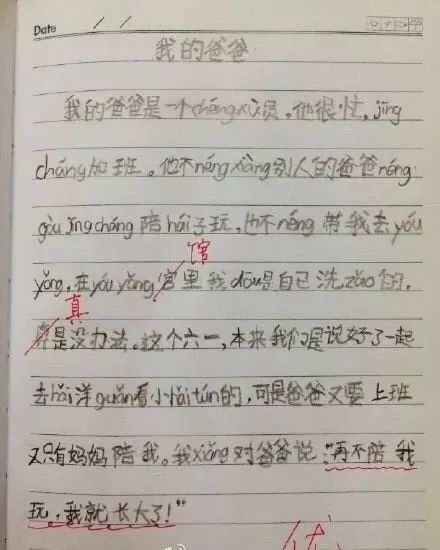 Date / /
我的爸爸
我的爸爸是一个chéngxù员,他很忙,jīng
cháng加班。他不néngxiàng别人的爸爸néng
gòu jīngcháng陪hái子玩,也不néng带我去yóu
馆
yǒng,在yóuyǒng官里我dōu是自己洗zǎo的,
真
是没办法。这个六一,本来我们是说好了一起
去hǎi洋guǎn看小hǎitún的,可是爸爸又要上班
又只有妈妈陪我。我xiǎng对爸爸说:“再不陪我
玩,我就长大了!”
优